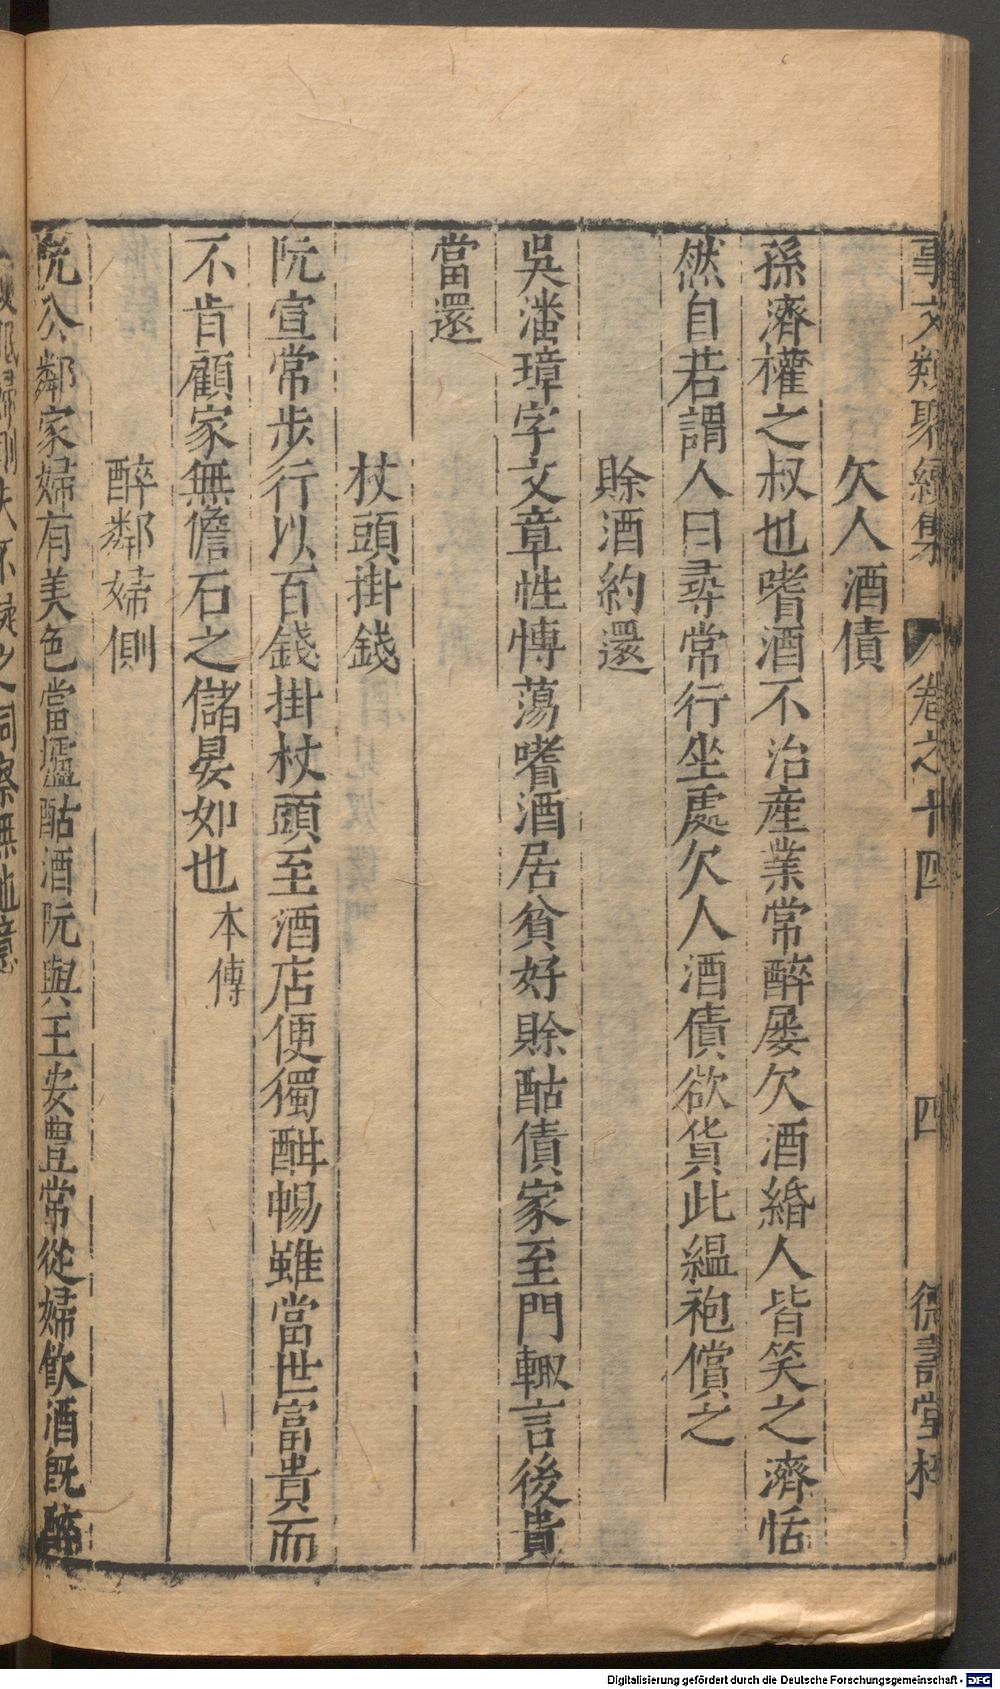 事文類聚續集 卷之十四 四 德壽堂梓
欠人酒債
孫濟權之叔也嗜酒不治產業常醉屡欠酒緡人皆笑之濟恬
然自若謂人曰尋常行坐處欠人酒債欲貨此緼袍償之
賒酒約還
吳潘璋字文章性慱蕩嗜酒居貧好賒酤債家至門輙言後貴
當還
杖頭掛錢
阮宣常步行以百錢掛杖頭至酒店便獨酣暢雖當世富貴而
不肯顧家無儋石之儲晏如也 本傳
醉鄰婦側
阮公鄰家婦有美色當壚酤酒阮與王安豊常從婦飲酒既醉
便眠婦側夫不疑之伺察無他意
Digitalisierung gefördert durch die Deutsche Forschungsgemeinschaft - DFG